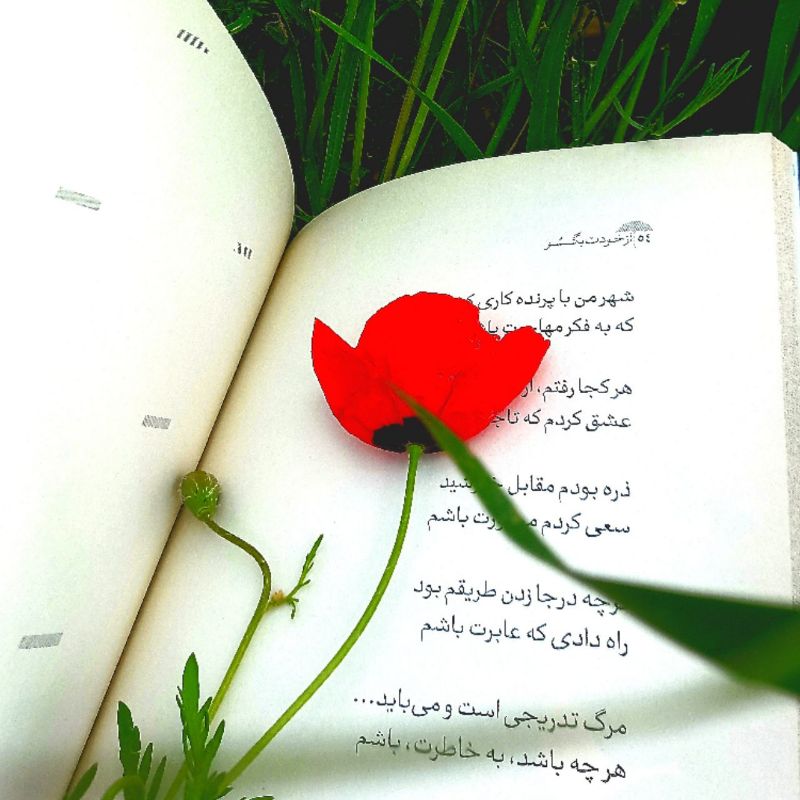 ۵۴ از خودت بگذر
شهر من با پرنده کاری
که به فکر مهاجرت باشم
هر کجا رفتم، از
عشق کردم که
ذره بودم مقابل خورشید
سعی کردم باشم
گرچه درجا زدن طریقم بود
راه دادی که عابرت باشم
مرگ تدریجی است و می‌باید...
هر چه باشد، به خاطرت، باشم